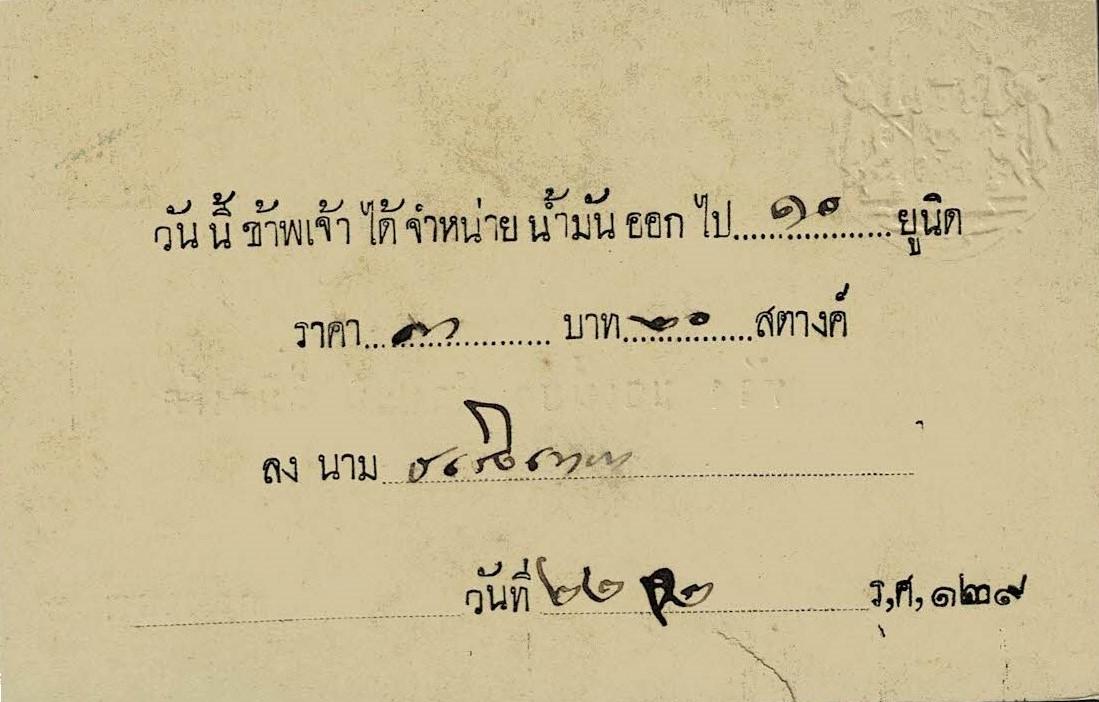 วัน นี้ ข้าพเจ้า ได้ จำหน่าย น้ำมัน ออก ไป ๑๐ ยูนิต
ราคา ๓ บาท ๒๐ สตางค์
ลง นาม
วันที่ ๒๒ ร,ศ,๑๒๙